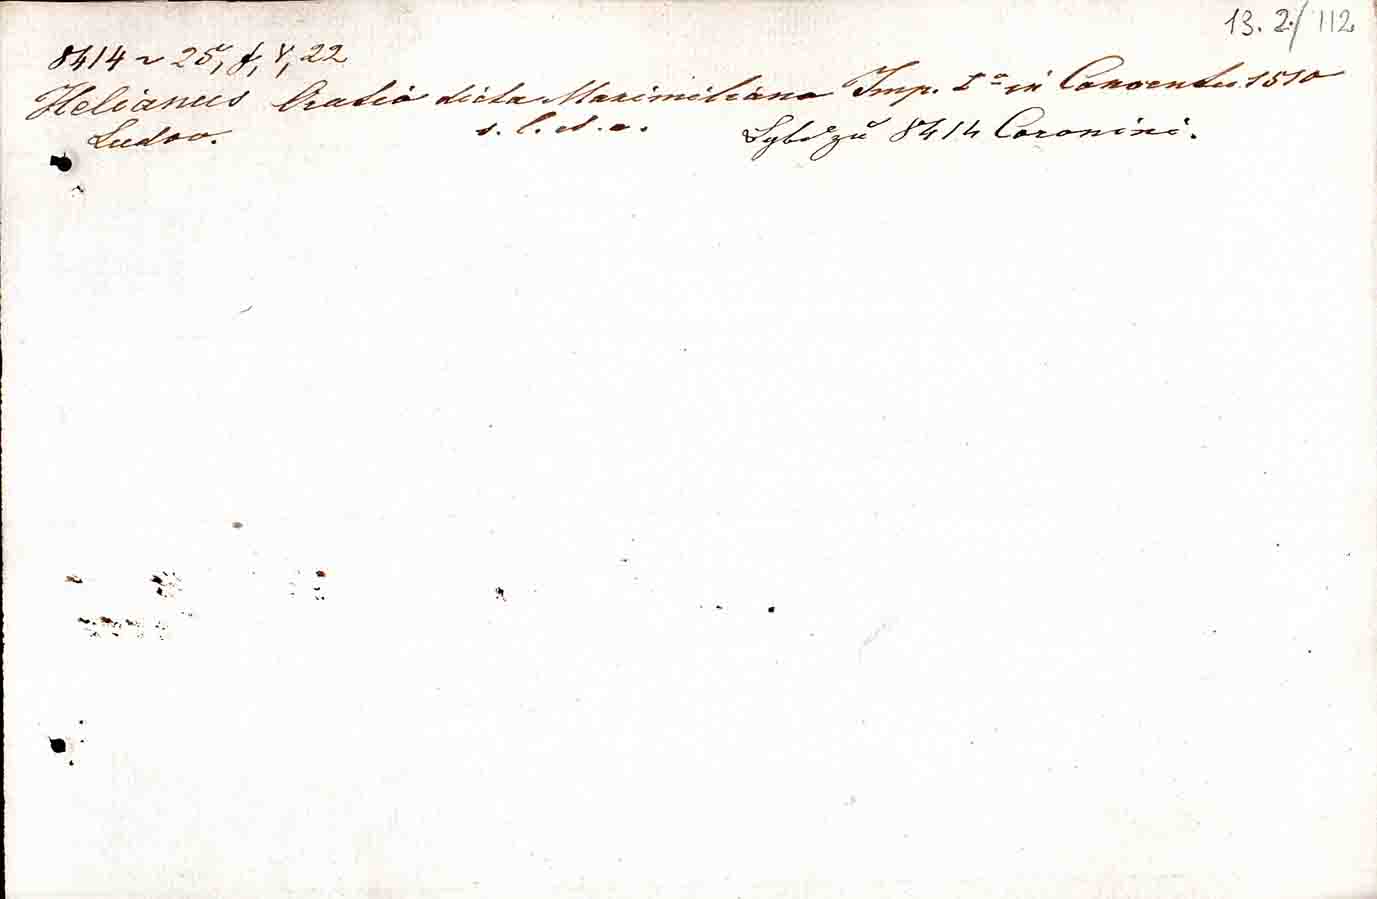 13. 2./112
8414 ~ 25, f, V, 22
Helianus Oratio dicta Maximiliano Imp. Io in Conventu 1510
Ludov. s. l. et. a. 8414 Coronini.